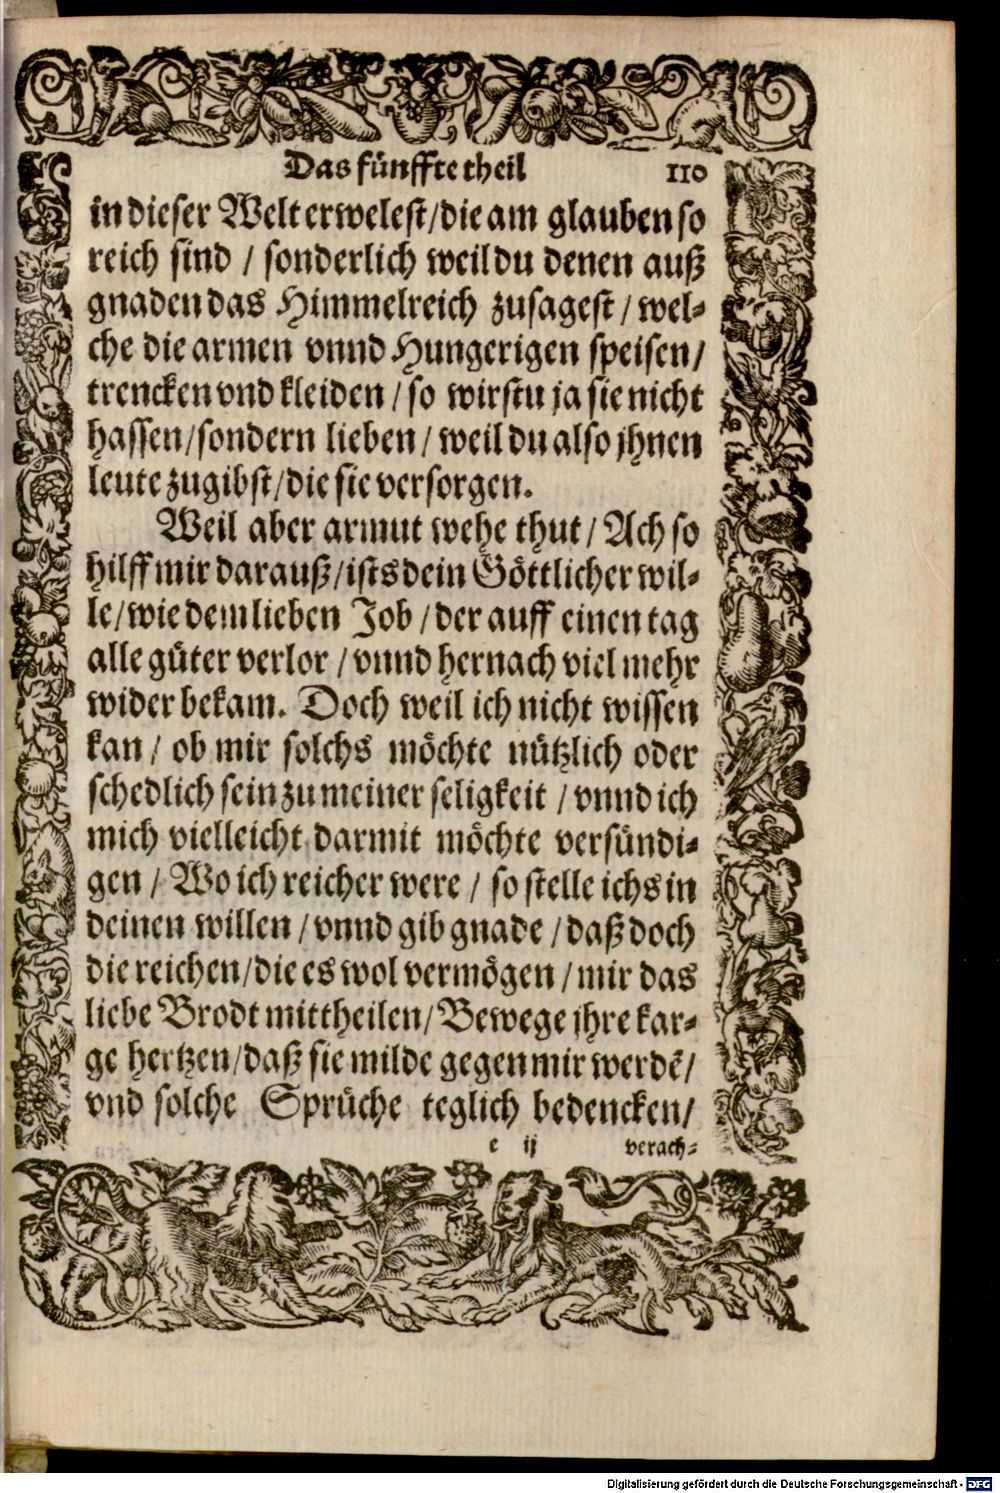 Das fünffte theil 110
in dieser Welt erwelest/die am glauben so
reich sind / sonderlich weil du denen auß
gnaden das Himmelreich zusagest / wel-
che die armen vnnd Hungerigen speisen/
trencken vnd kleiden / so wirstu ja sie nicht
hassen/sondern lieben / weil du also jhnen
leute zugibst/die sie versorgen.
Weil aber armut wehe thut / Ach so
hilff mir darauß/ists dein Göttlicher wil-
le/wie dem lieben Job / der auff einen tag
alle güter verlor / vnnd hernach viel mehr
wider bekam. Doch weil ich nicht wissen
kan / ob mir solchs möchte nützlich oder
schedlich sein zu meiner seligkeit / vnnd ich
mich vielleicht darmit möchte versündi-
gen / Wo ich reicher were / so stelle ichs in
deinen willen / vnnd gib gnade / daß doch
die reichen/die es wol vermögen / mir das
liebe Brodt mittheilen/ Bewege jhre kar-
ge hertzen/daß sie milde gegen mir werdẽ/
vnd solche Sprüche teglich bedencken/
e ij verach-
Digitalisierung gefördert durch die Deutsche Forschungsgemeinschaft - DFG